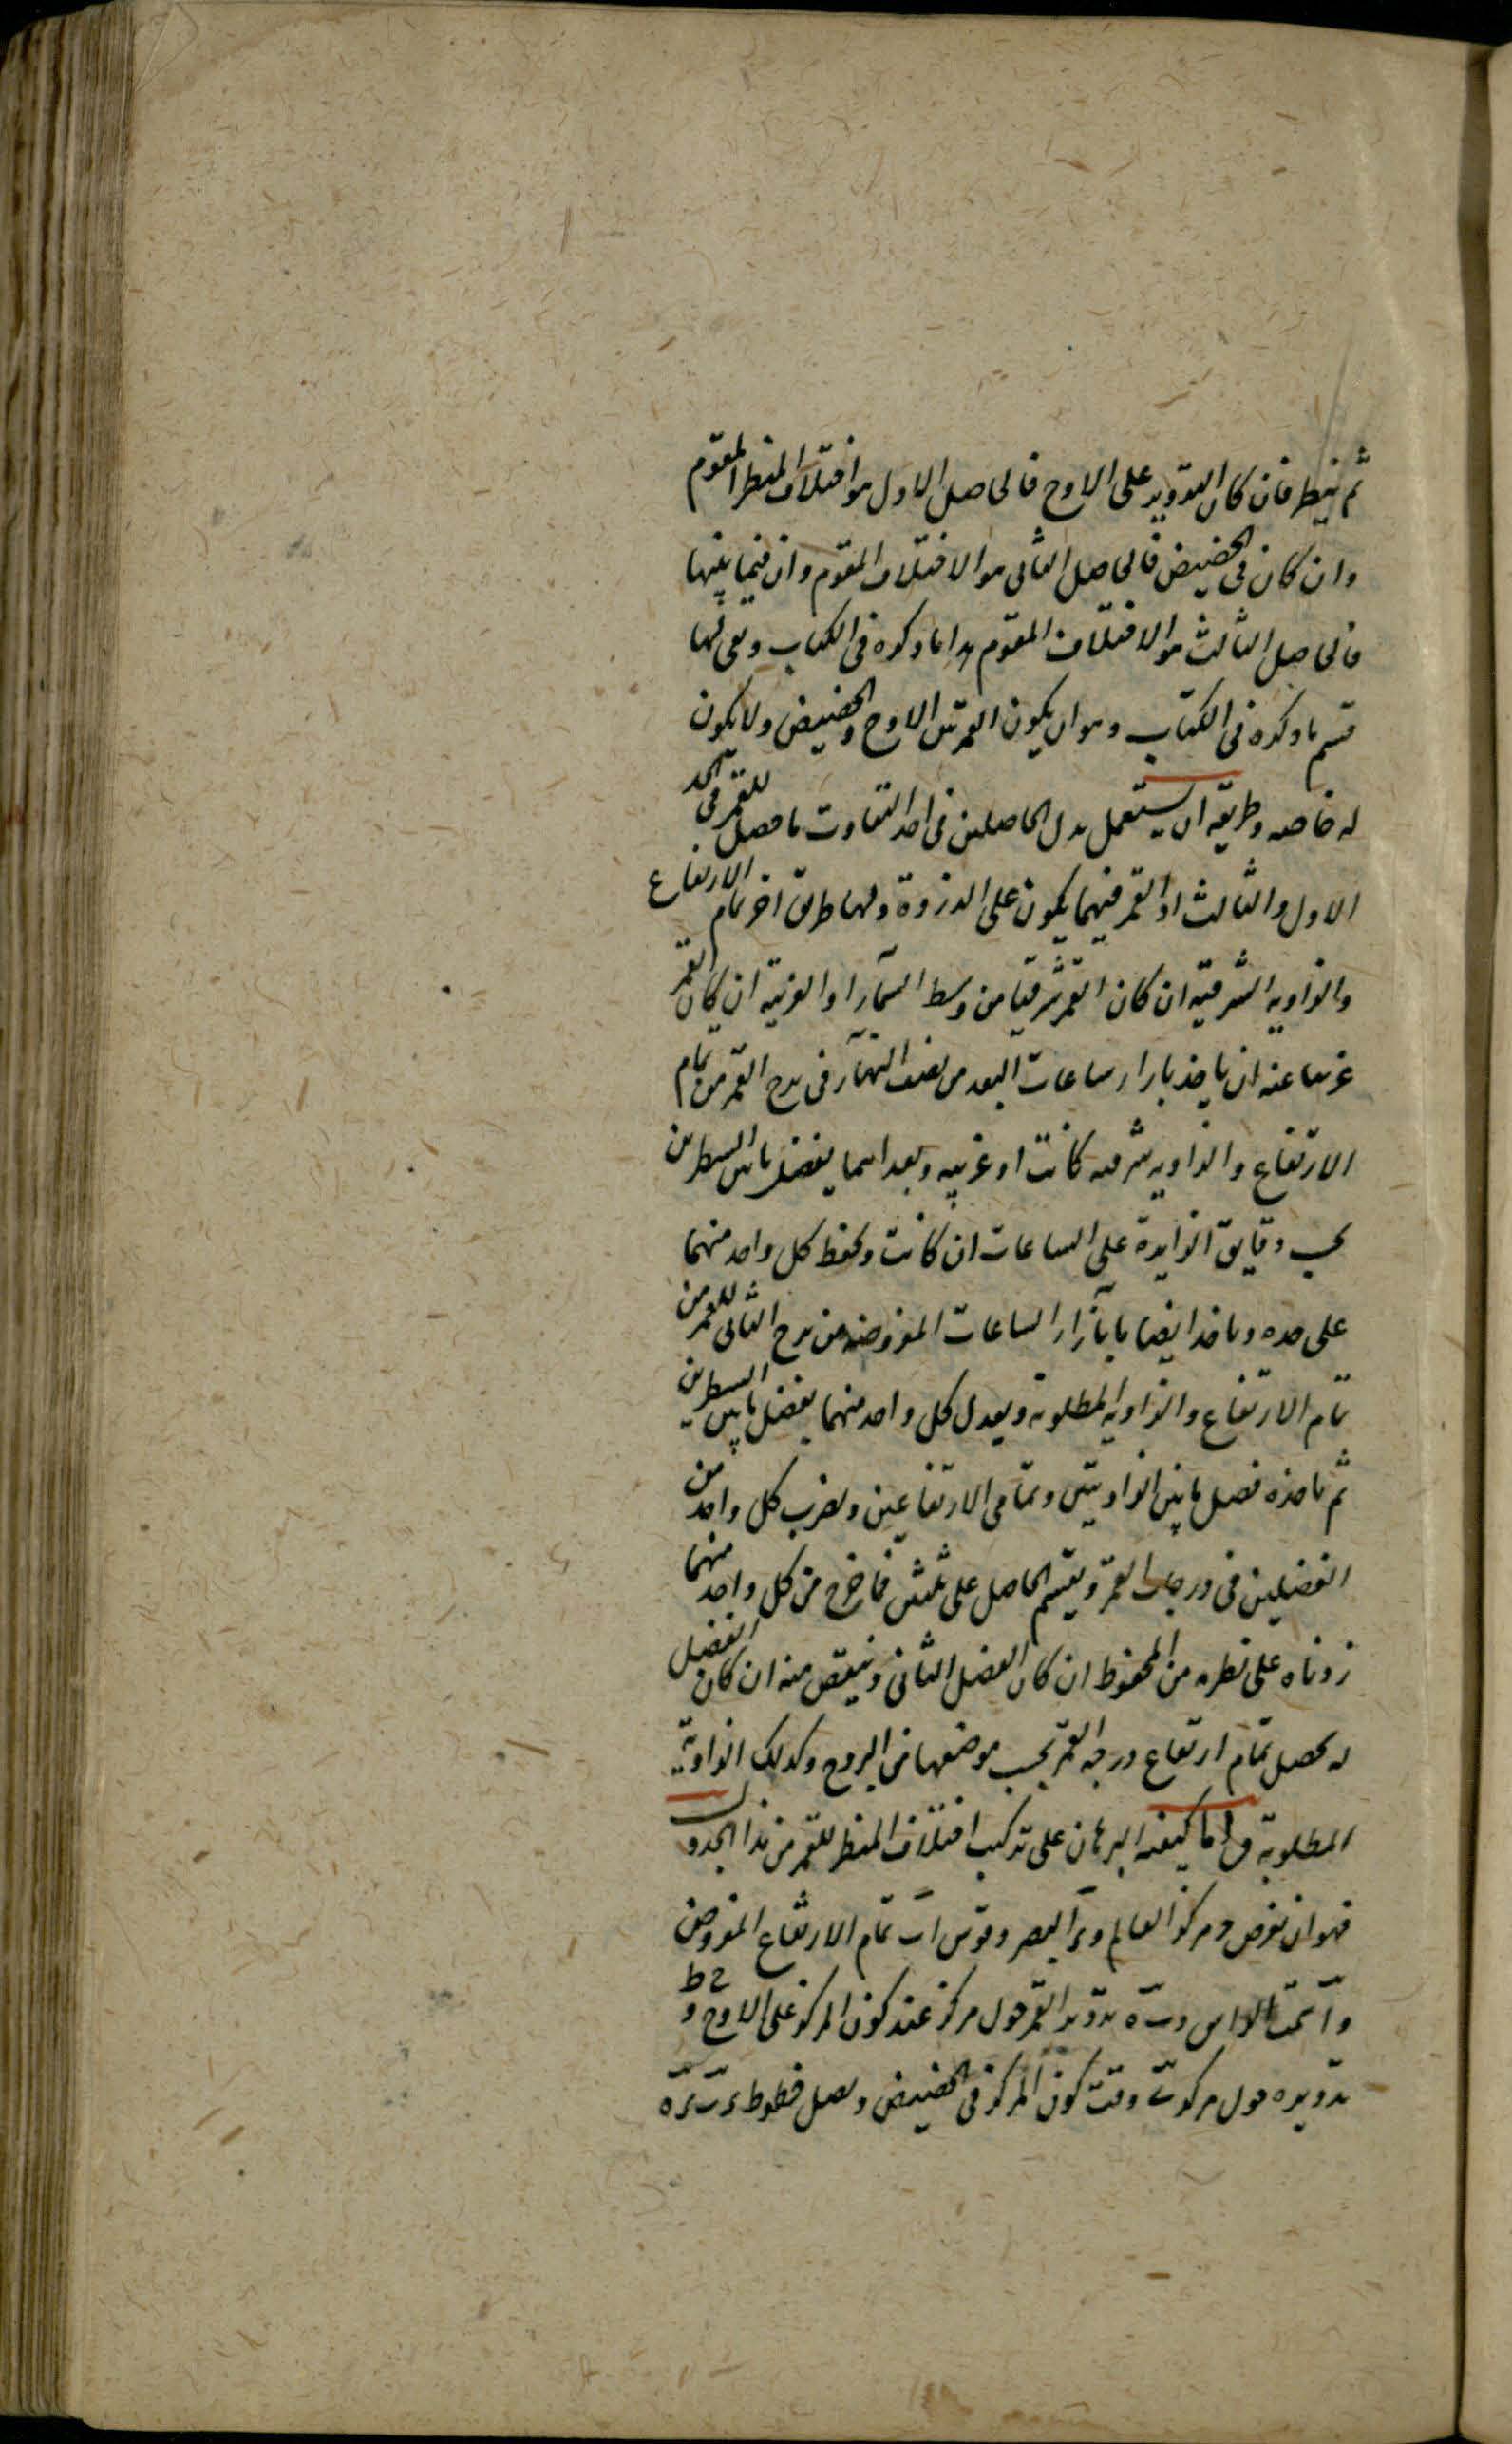 ثم ينظر فان كان التدوير على الاوج فالحاصل الاول هو اختلاف المنظر المقوم
وان كان فى الحضيض فالحاصل الثانى هو الاختلاف المقوم وان فيما بينهما
فالحاصل الثالث هو الاختلاف المقوم هذا ما ذكره فى الكتاب وبقى لها
قسم ما ذكره فى الكتاب وهو ان يكون القمر بين الاوج والحضيض ولا يكون
له خاصه وطريقه ان يستعمل بدل الحاصلين فى اخذ التفاوت ما حصل للقمر فى الحد
الاول والثالث اذ القمر فيهما يكون على الذروة ولها طريق اخر تمام الارتفاع
والزاويه الشرقيه ان كان القمر شرقيا من وسط السمآء او الغربية ان كان القمر
غربيا عنه ان ياخذ بازاء ساعات البعد من نصف النهآر فى برج القمر من تمام
الارتفاع والزاويه شرقيه كانت او غربيه وبعد لهما بفضل ما بين السطرين
بحسب دقايق الزايدة على الساعات ان كانت ويحفظ كل واحد منهما
على حده وياخذ ايضا بازآء الساعات المفروضه من برج الثانى للقمر من
تمام الارتفاع والزاويه المطلوبة ويعدل كل واحد منهما بفضل ما بين السطرين
ثم ياخذه فضل ما بين الزاويتين وتمامى الارتفاعين ويضرب كل واحد من
الفضلين فى درجات القمر ويقسم الحاصل على ثلثين فما خرج من كل واحد منهما
زدناه على نظيره من المحفوظ ان كان الفضل الثانى وينقص منه ان كان الفضل
له يحصل تمام ارتفاع درجه القمر بحسب موضعها من البروج وكذلك الزاوية
المطلوبة واما كيفيه البرهان على تركيب اختلاف المنظر للقمر من هذا الجدول
فهو ان نفرض د مركز العالم و البصر وقوس اب تمام الارتفاع المفروض
وآ سمت الراس وب ه تدوير القمر حول مركز عند كون المركز على الاوج و ح ط
تدويره حول مركز وقت كون المركز فى الحضيض ونصل خطوط